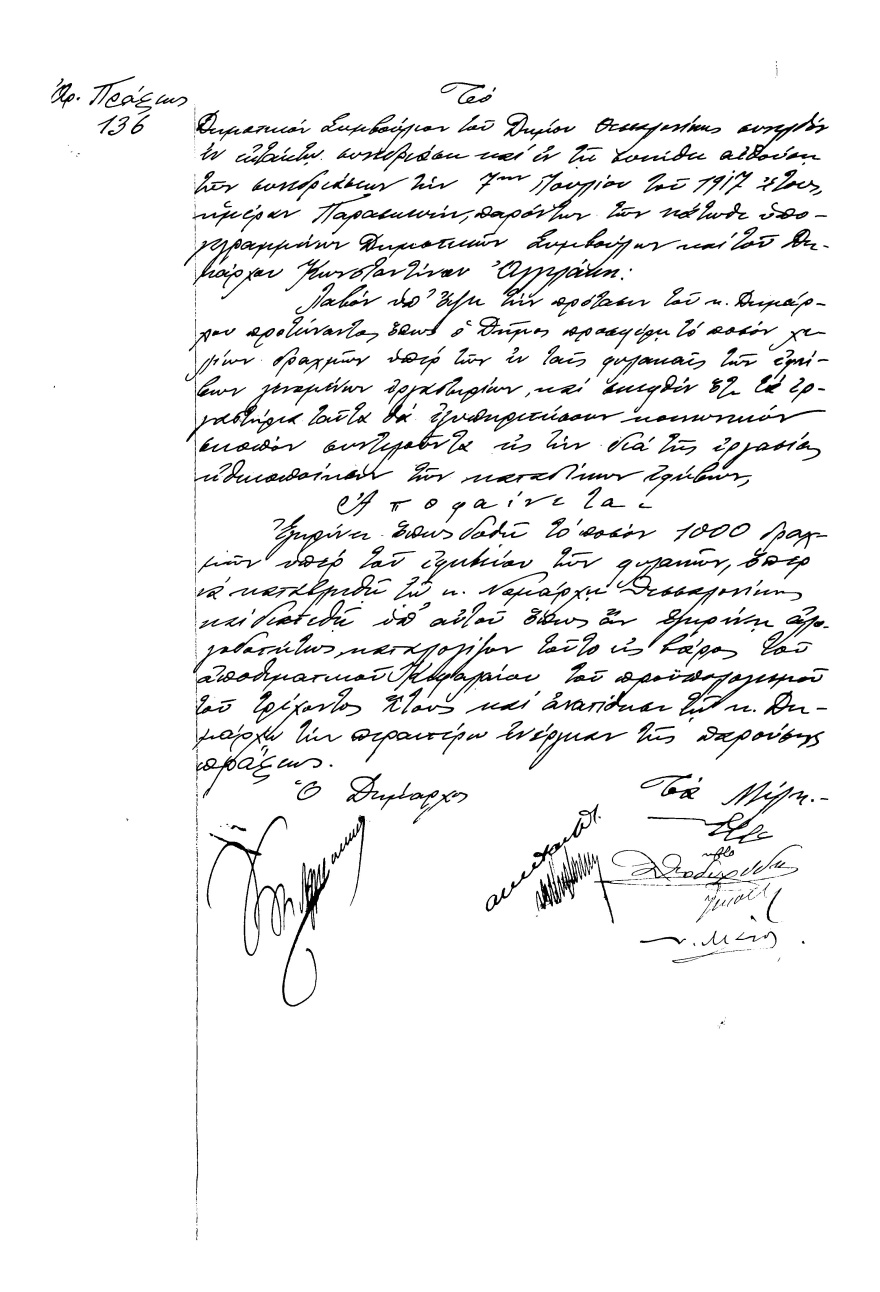 Ἀρ. Πράξεως
136
Τὸ
Δημοτικὸν Συμβούλιον τοῦ Δήμου Θεσσαλονίκης συνελθὸν
ἐν ἐκτάκτῳ συνεδριάσει καὶ ἐν τῇ συνήθει αἰθούσῃ
τῶν συνεδριάσεων τὴν 7ην Ἰουλίου τοῦ 1917 ἔτους,
ἡμέραν Παρασκευήν, παρόντων τῶν κάτωθι ὑπο-
γεγραμμένων Δημοτικῶν Συμβούλων καὶ τοῦ Δη-
μάρχου Κωνσταντίνου Ἀγγελάκη:
Λαβὸν ὑπ' ὄψει τὴν πρότασιν τοῦ κ. Δημάρ-
χου προτείναντος ὅπως ὁ Δῆμος προσφέρῃ τὸ ποσὸν χι-
λίων δραχμῶν ὑπὲρ τῶν ἐν ταῖς φυλακαῖς τῶν ἐφή-
βων γενομένων ἐργαστηρίων, καὶ σκεφθὲν ὅτι τὰ ἐρ-
γαστήρια ταῦτα θὰ ἐξυπηρετήσουν κοινωνικὸν
σκοπὸν συντελοῦντα εἰς τὴν διὰ τῆς ἐργασίας
ἠθικοποίησιν τῶν καταδίκων ἐφήβων,
Ἀποφαίνεται
Ἐγκρίνει ὅπως δοθῇ τὸ ποσὸν 1000 δραχ-
μῶν ὑπὲρ τοῦ ἐφηβείου τῶν φυλακῶν, ὅπερ
νὰ καταβληθῇ τῷ κ. Νομάρχῃ Θεσσαλονίκης
καὶ διατεθῇ ὑπ' αὐτοῦ ὅπως ἂν ἐγκρίνῃ ἀλο-
γοδοτήτως, καταλογίζον τοῦτο εἰς βάρος τοῦ
ἀποθεματικοῦ Κεφαλαίου τοῦ προϋπολογισμοῦ
τοῦ τρέχοντος ἔτους καὶ ἀναπίθησι τῷ κ. Δη-
μάρχῳ τὴν περαιτέρω ἐνέργειαν τῆς παρούσης
πράξεως.
Ὁ Δήμαρχος
Τὰ Μέλη.-